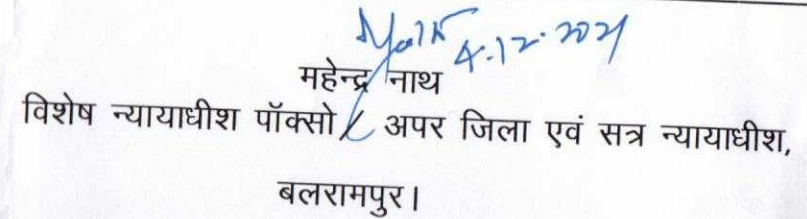 4.12.2021
महेन्द्र नाथ
विशेष न्यायाधीश पॉक्सो / अपर जिला एवं सत्र न्यायाधीश,
बलरामपुर।